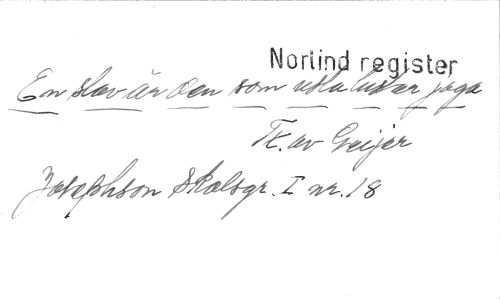 Norlind register
En slav är den som usla lustar jaga
Tk. av Geijer
Josephson Skolsgr. I nr. 18